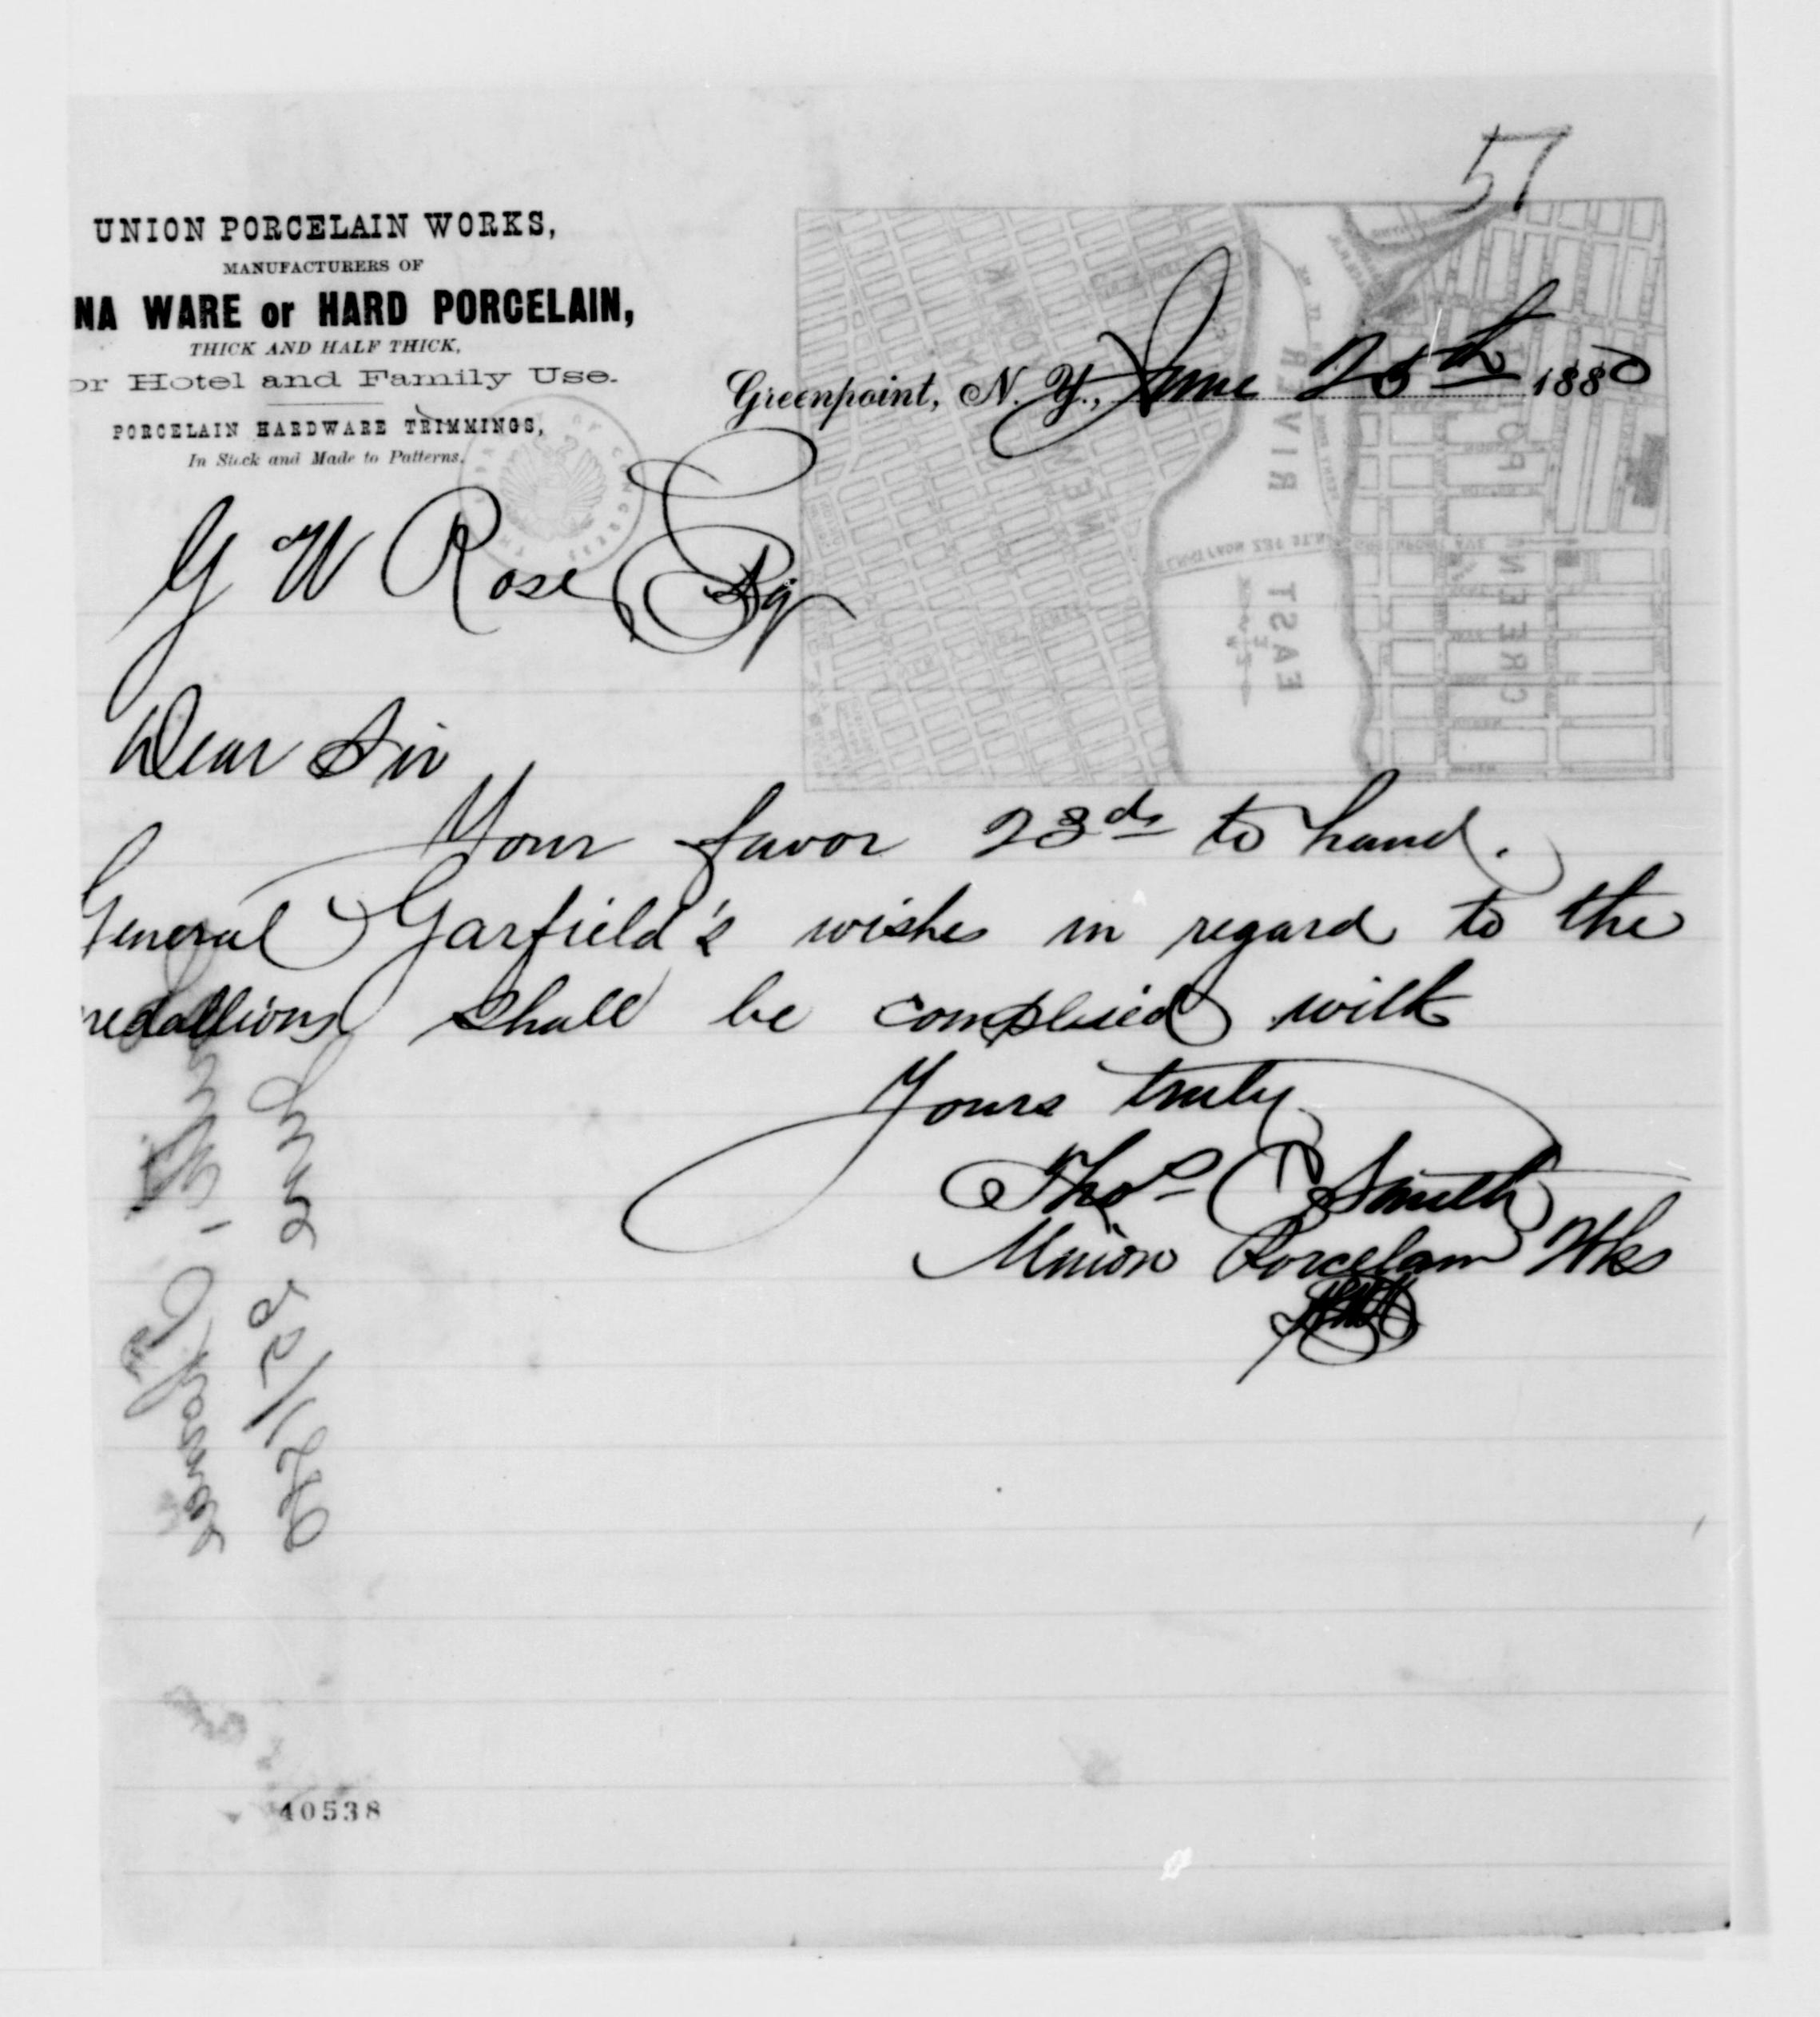 57
UNION PORCELAIN WORKS,
MANUFACTURERS OF
NA WARE or HARD PORCELAIN,
THICK AND HALF THICK,
or Hotel and Family Use.
PORCELAIN HARDWARE TRIMMINGS,
In Stock and Made to Patterns.
Greenpoint, N. Y., June 25th 1880
EAST RIVER
G W Rose Esq
Dear Sir
Your favor 23d to hand.
General Garfield's wishes in regard to the
medallions shall be complied with
Yours truly
Thos C Smith
Union Porcelain Wks
June 25/80
40538